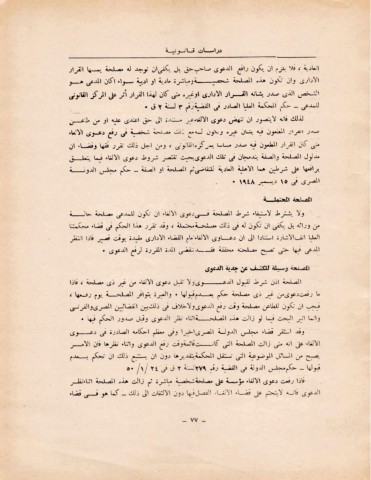 دراسات قانونية
العادية ، فلا يلزم ان يكون رافع الدعوى صاحب حق بل يكفى ان توجد له مصلحة يمسها القرار
الادارى وان تكون هذه المصلحة شخصية ومباشرة مادية او ادبية سواء اكان المدعى هو
الشخص الذى صدر بشأنه القرار الادارى او غيره متى كان لهذا القرار أثر على المركز القانونى
للمدعى — حكم المحكمة العليا الصادر فى القضية رقم ٣ لسنة ٢ ق ٠
لذلك فانه لايتصور ان تنهض دعوى الالغاء غير مستندة الى حق اعتدى عليه او من طاعن
صدر القرار المطعون فيه بشأن غيره وتكون له مع ذلك مصلحة شخصية فى رفع دعوى الالغاء
متى كان القرار المطعون فيه صدر مساسا بمركزه القانونى ، ومن اجل ذلك تقرر فقها وقضاء ان
مدلول المصلحة والصفة يندمجان فى تلك الدعوى بحيث تقتصر شروط دعوى الالغاء فيما يتعلق
برافعها على شرطين هما الاهلية العادية للتقاضى ثم المصلحة او الصفة — حكم مجلس الدولة
المصرى فى ١٥ ديسمبر ١٩٤٨ ٠
المصلحة المحتملة
ولا يشترط لاستيفاء شرط المصلحة فى دعوى الالغاء ان تكون للمدعى مصلحة حالة
من ورائه بل يكفى ان تكون له فى ذلك مصلحة محتملة ، وقد تقرر هذا الحكم فى قضاء محكمتنا
العليا انف الاشارة استنادا الى ان دعاوى الالغاء امام القضاء الادارى مقيدة بوقت قصير فاذا انتظر
المدعى فيها حتى تصبح مصلحته محققة فقد تنقضى المدة المقررة لرفع الدعوى ٠
المصلحة وسيلة للكشف عن جدية الدعوى
المصلحة اذن شرط لقبول الدعوى ولا تقبل دعوى الالغاء من غير ذى مصلحة ، فاذا
ما رفعت دعوى من غير ذى مصلحة حكم بعدم قبولها ، والعبرة بتوافر المصلحة يوم رفعها ،
فيجب ان تكون للطاعن مصلحة وقت رفع الدعوى ولا خلاف فى ذلك بين القضائين المصرى والفرنسى
وانما اثير البحث فيما لو زالت هذه المصلحة اثناء نظر الدعوى وقبل صدور الحكم فيها ٠
وقد استقر قضاء مجلس الدولة المصرى اخيرا وفى معظم احكامه الصادرة فى دعوى
الالغاء على انه متى زالت المصلحة التى كانت قائمة وقت رفع الدعوى واثناء نظرها فان الامر
يصبح من المسائل الموضوعية التى تستقل المحكمة بتقديرها دون ان يستتبع ذلك ان تحكم بعدم
قبولها — حكم مجلس الدولة فى القضية رقم ٢٧٩ لسنة ٢ ق فى ٢٤ / ١ / ٥٠
فاذا رفعت دعوى الالغاء مؤسسة على مصلحة شخصية مباشرة ثم زالت هذه المصلحة اثناء نظر
الدعوى فانه لايتحتم على قضاء الالغاء الفصل فيها دون الالتفات الى ذلك — كما هو فى قضاء
— ٧٧ —